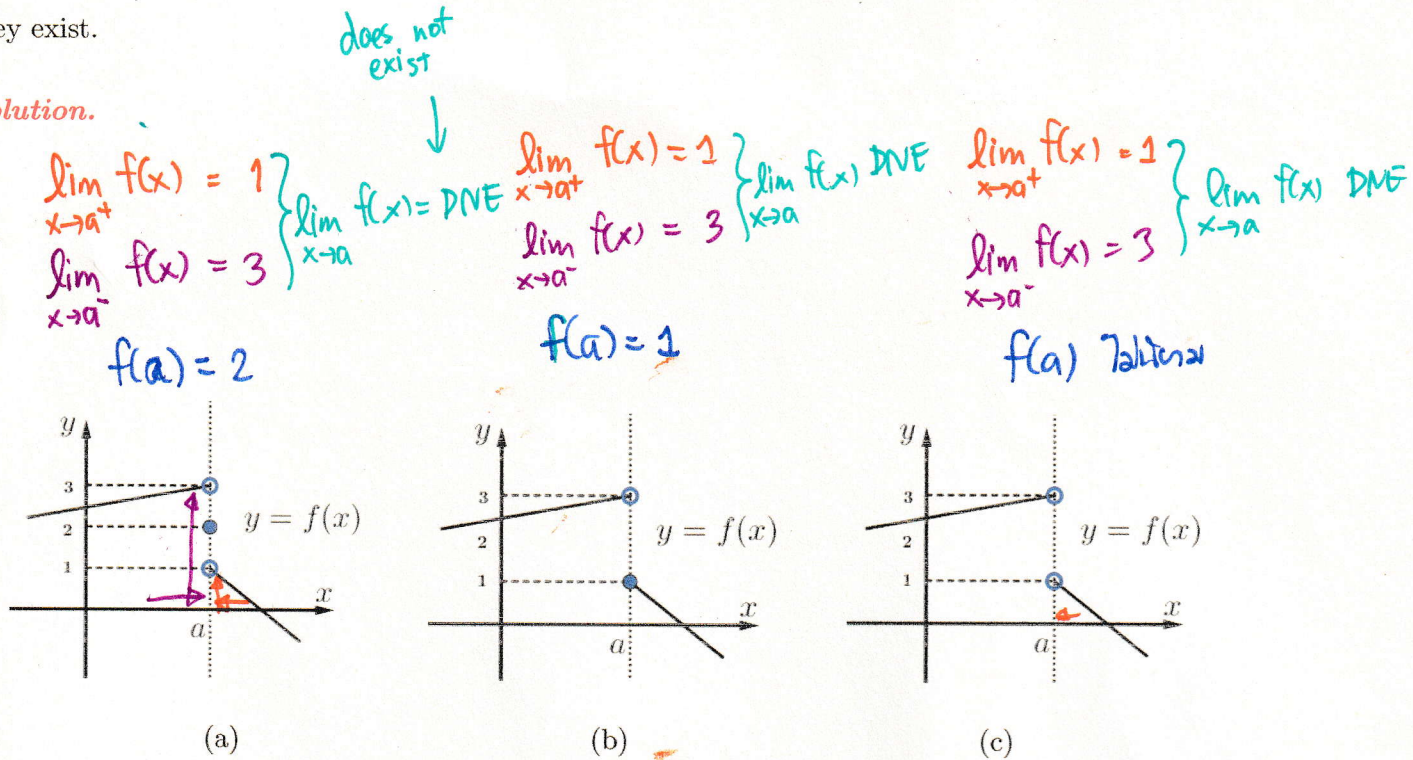 ey exist.
does not
exist
olution.
lim x→a⁺ f(x) = 1
lim x→a⁻ f(x) = 3
lim x→a f(x) = DNE
f(a) = 2
lim x→a⁺ f(x) = 1
lim x→a⁻ f(x) = 3
lim x→a f(x) DNE
f(a) = 1
lim x→a⁺ f(x) = 1
lim x→a⁻ f(x) = 3
lim x→a f(x) DNE
f(a) ไม่นิยาม
y
3
2
1
y = f(x)
x
a
(a)
y
3
2
1
y = f(x)
x
a
(b)
y
3
2
1
y = f(x)
x
a
(c)